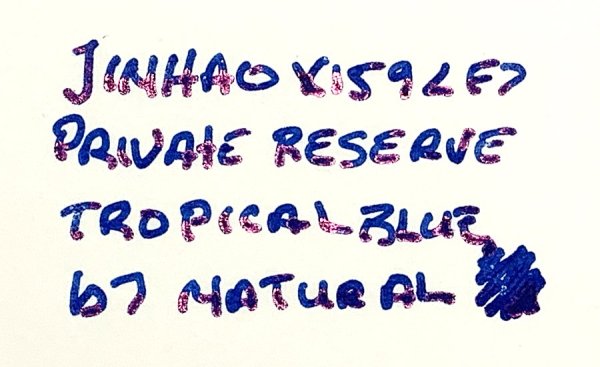 JINHAO X159 <F>
PRIVATE RESERVE
TROPICAL BLUE
67 NATURAL